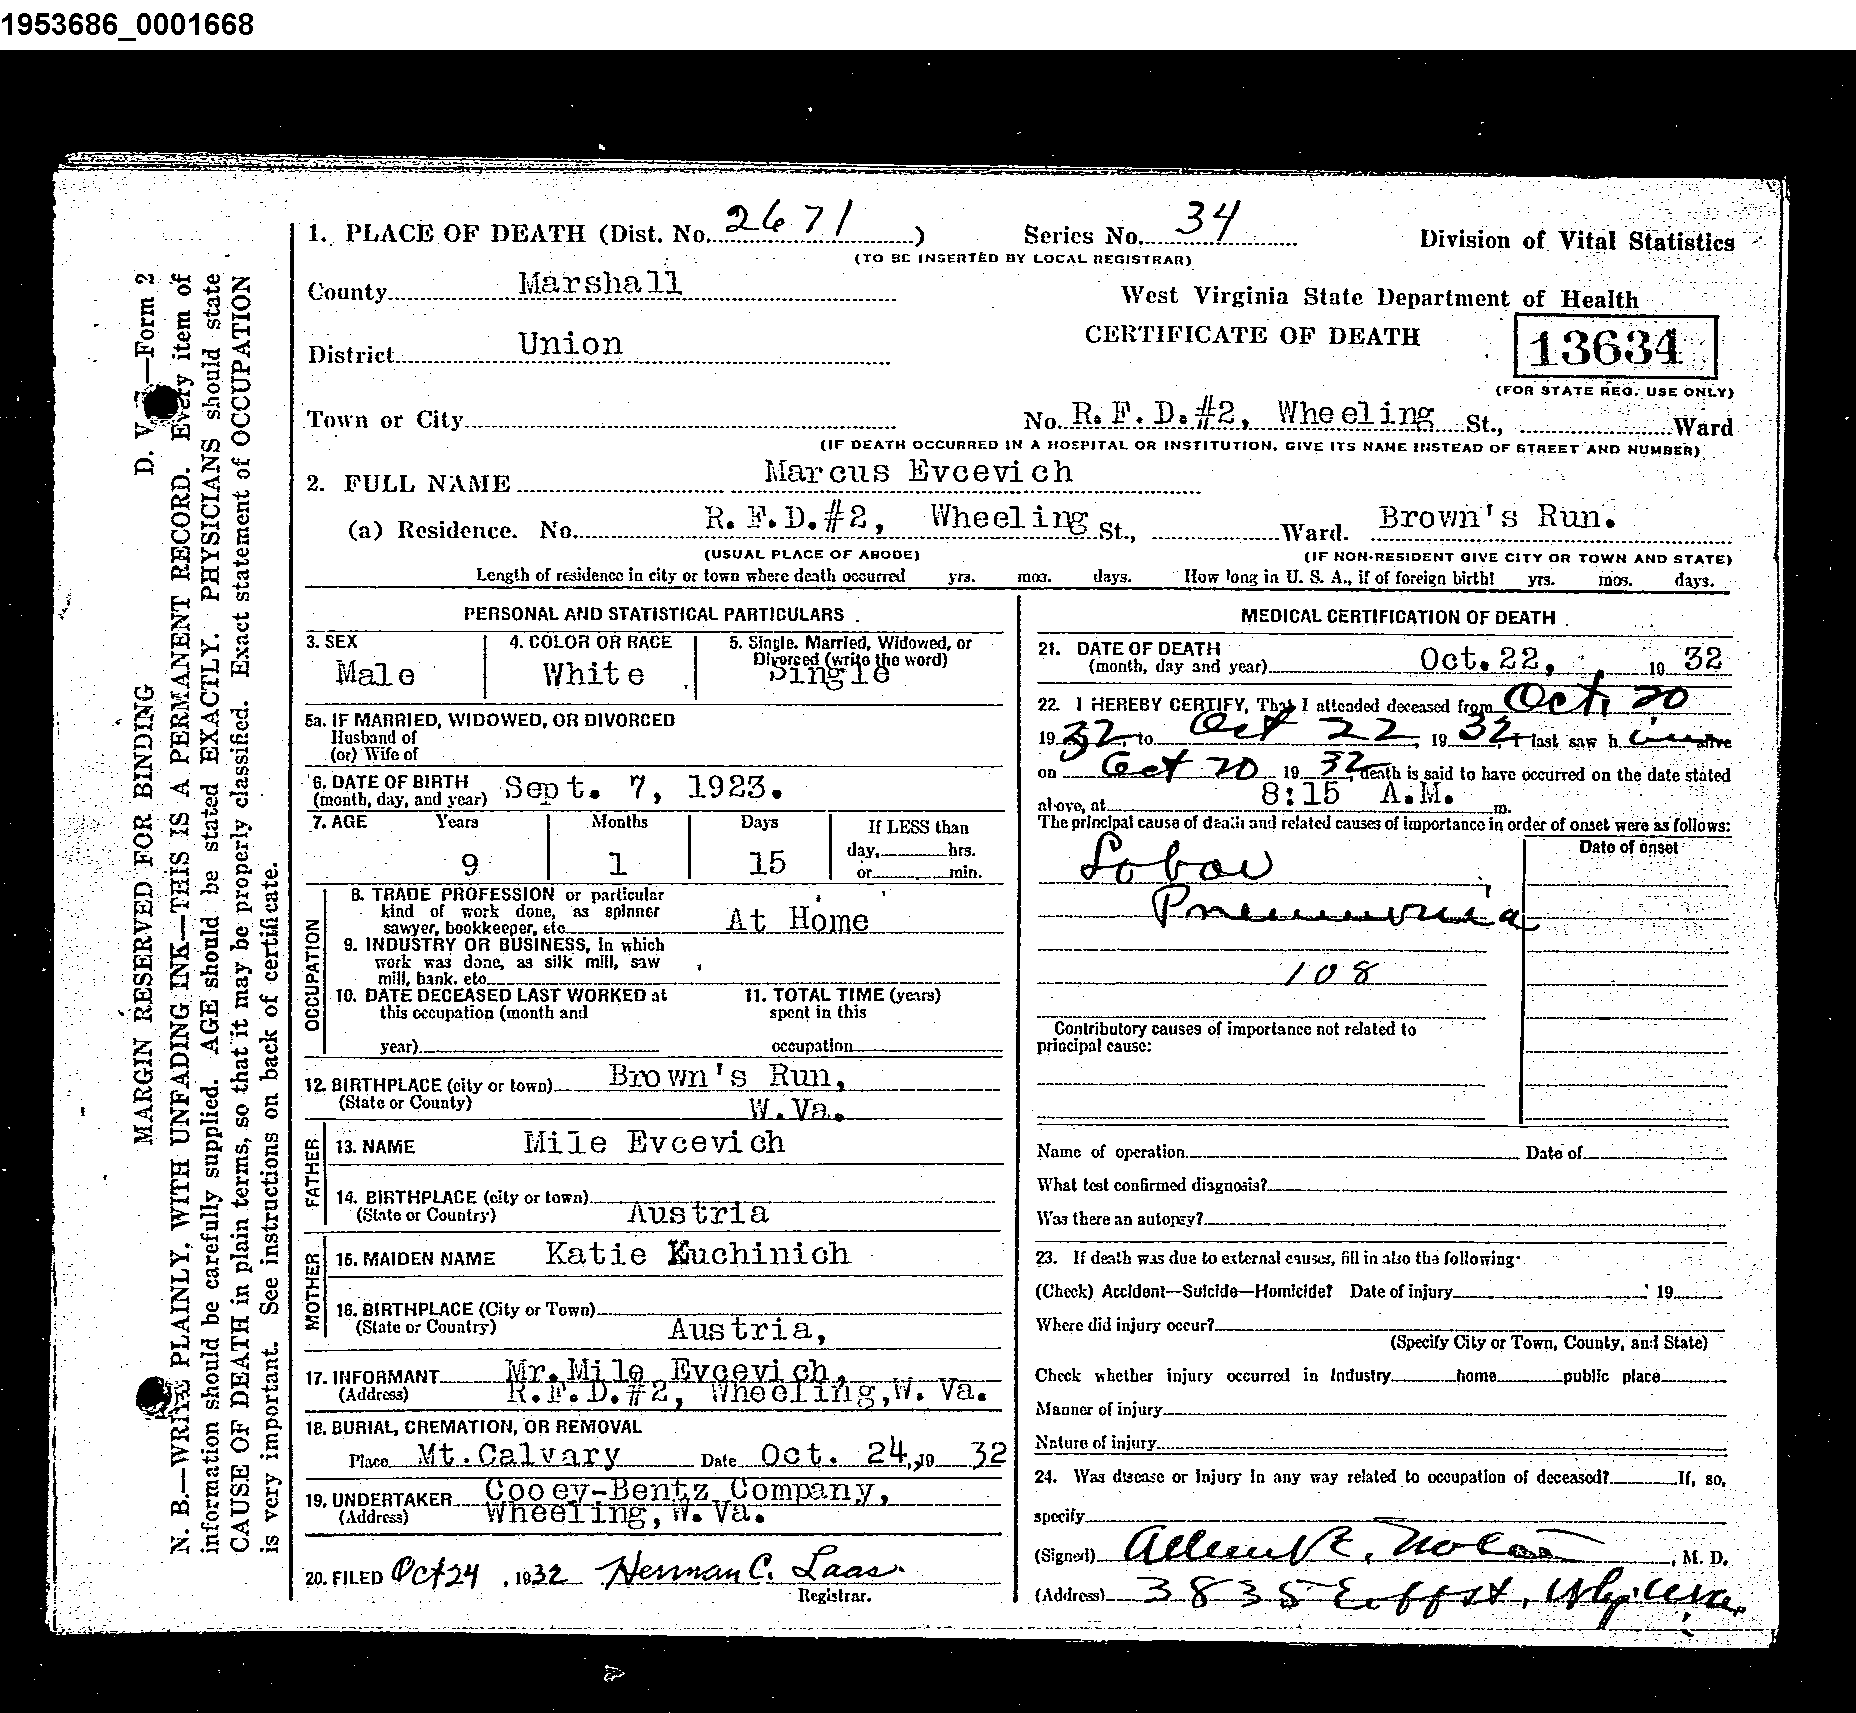 1953686_0001668
1. PLACE OF DEATH (Dist. No. 2671) Series No. 34 Division of Vital Statistics
(TO BE INSERTED BY LOCAL REGISTRAR)
County Marshall West Virginia State Department of Health
CERTIFICATE OF DEATH
District Union 13634
(FOR STATE REG. USE ONLY)
Town or City No. R.F.D.#2, Wheeling St., Ward
(IF DEATH OCCURRED IN A HOSPITAL OR INSTITUTION, GIVE ITS NAME INSTEAD OF STREET AND NUMBER)
2. FULL NAME Marcus Evcevich
(a) Residence. No. R.F.D.#2, Wheeling St., Ward. Brown's Run.
(USUAL PLACE OF ABODE) (IF NON-RESIDENT GIVE CITY OR TOWN AND STATE)
Length of residence in city or town where death occurred yrs. mos. days. How long in U. S. A., if of foreign birth? yrs. mos. days.
PERSONAL AND STATISTICAL PARTICULARS
3. SEX 4. COLOR OR RACE 5. Single, Married, Widowed, or
Divorced (write the word)
Male White Single
5a. IF MARRIED, WIDOWED, OR DIVORCED
Husband of
(or) Wife of
6. DATE OF BIRTH Sept. 7, 1923.
(month, day, and year)
7. AGE Years Months Days If LESS than
day, hrs.
9 1 15 or min.
OCCUPATION
8. TRADE PROFESSION or particular
kind of work done, as spinner
sawyer, bookkeeper, etc. At Home
9. INDUSTRY OR BUSINESS, in which
work was done, as silk mill, saw
mill, bank, etc.
10. DATE DECEASED LAST WORKED at 11. TOTAL TIME (years)
this occupation (month and spent in this
year) occupation
12. BIRTHPLACE (city or town) Brown's Run,
(State or County) W.Va.
FATHER
13. NAME Mile Evcevich
14. BIRTHPLACE (city or town)
(State or Country) Austria
MOTHER
15. MAIDEN NAME Katie Kuchinich
16. BIRTHPLACE (City or Town)
(State or Country) Austria,
17. INFORMANT Mr. Mile Evcevich,
(Address) R.F.D.#2, Wheeling, W. Va.
18. BURIAL, CREMATION, OR REMOVAL
Place Mt. Calvary Date Oct. 24, 19 32
19. UNDERTAKER Cooey-Bentz Company,
(Address) Wheeling, W.Va.
20. FILED Oct 24, 1932 Herman C. Laas.
Registrar.
MEDICAL CERTIFICATION OF DEATH
21. DATE OF DEATH
(month, day and year) Oct. 22, 19 32
22. I HEREBY CERTIFY, That I attended deceased from Oct. 20
19 32, to Oct 22, 19 32, I last saw him alive
on Oct 20 19 32, death is said to have occurred on the date stated
above, at 8:15 A.M. m.
The principal cause of death and related causes of importance in order of onset were as follows:
Date of onset
Lobar
Pneumonia
108
Contributory causes of importance not related to
principal cause:
Name of operation Date of
What test confirmed diagnosis?
Was there an autopsy?
23. If death was due to external causes, fill in also the following:
(Check) Accident—Suicide—Homicide? Date of injury 19
Where did injury occur?
(Specify City or Town, County, and State)
Check whether injury occurred in industry home public place
Manner of injury
Nature of injury
24. Was disease or injury in any way related to occupation of deceased? If, so,
specify
(Signed) , M. D.
(Address) 3835 Eoff St,
MARGIN RESERVED FOR BINDING D. V. —Form 2
N. B.—WRITE PLAINLY, WITH UNFADING INK—THIS IS A PERMANENT RECORD. Every item of
information should be carefully supplied. AGE should be stated EXACTLY. PHYSICIANS should state
CAUSE OF DEATH in plain terms, so that it may be properly classified. Exact statement of OCCUPATION
is very important. See instructions on back of certificate.